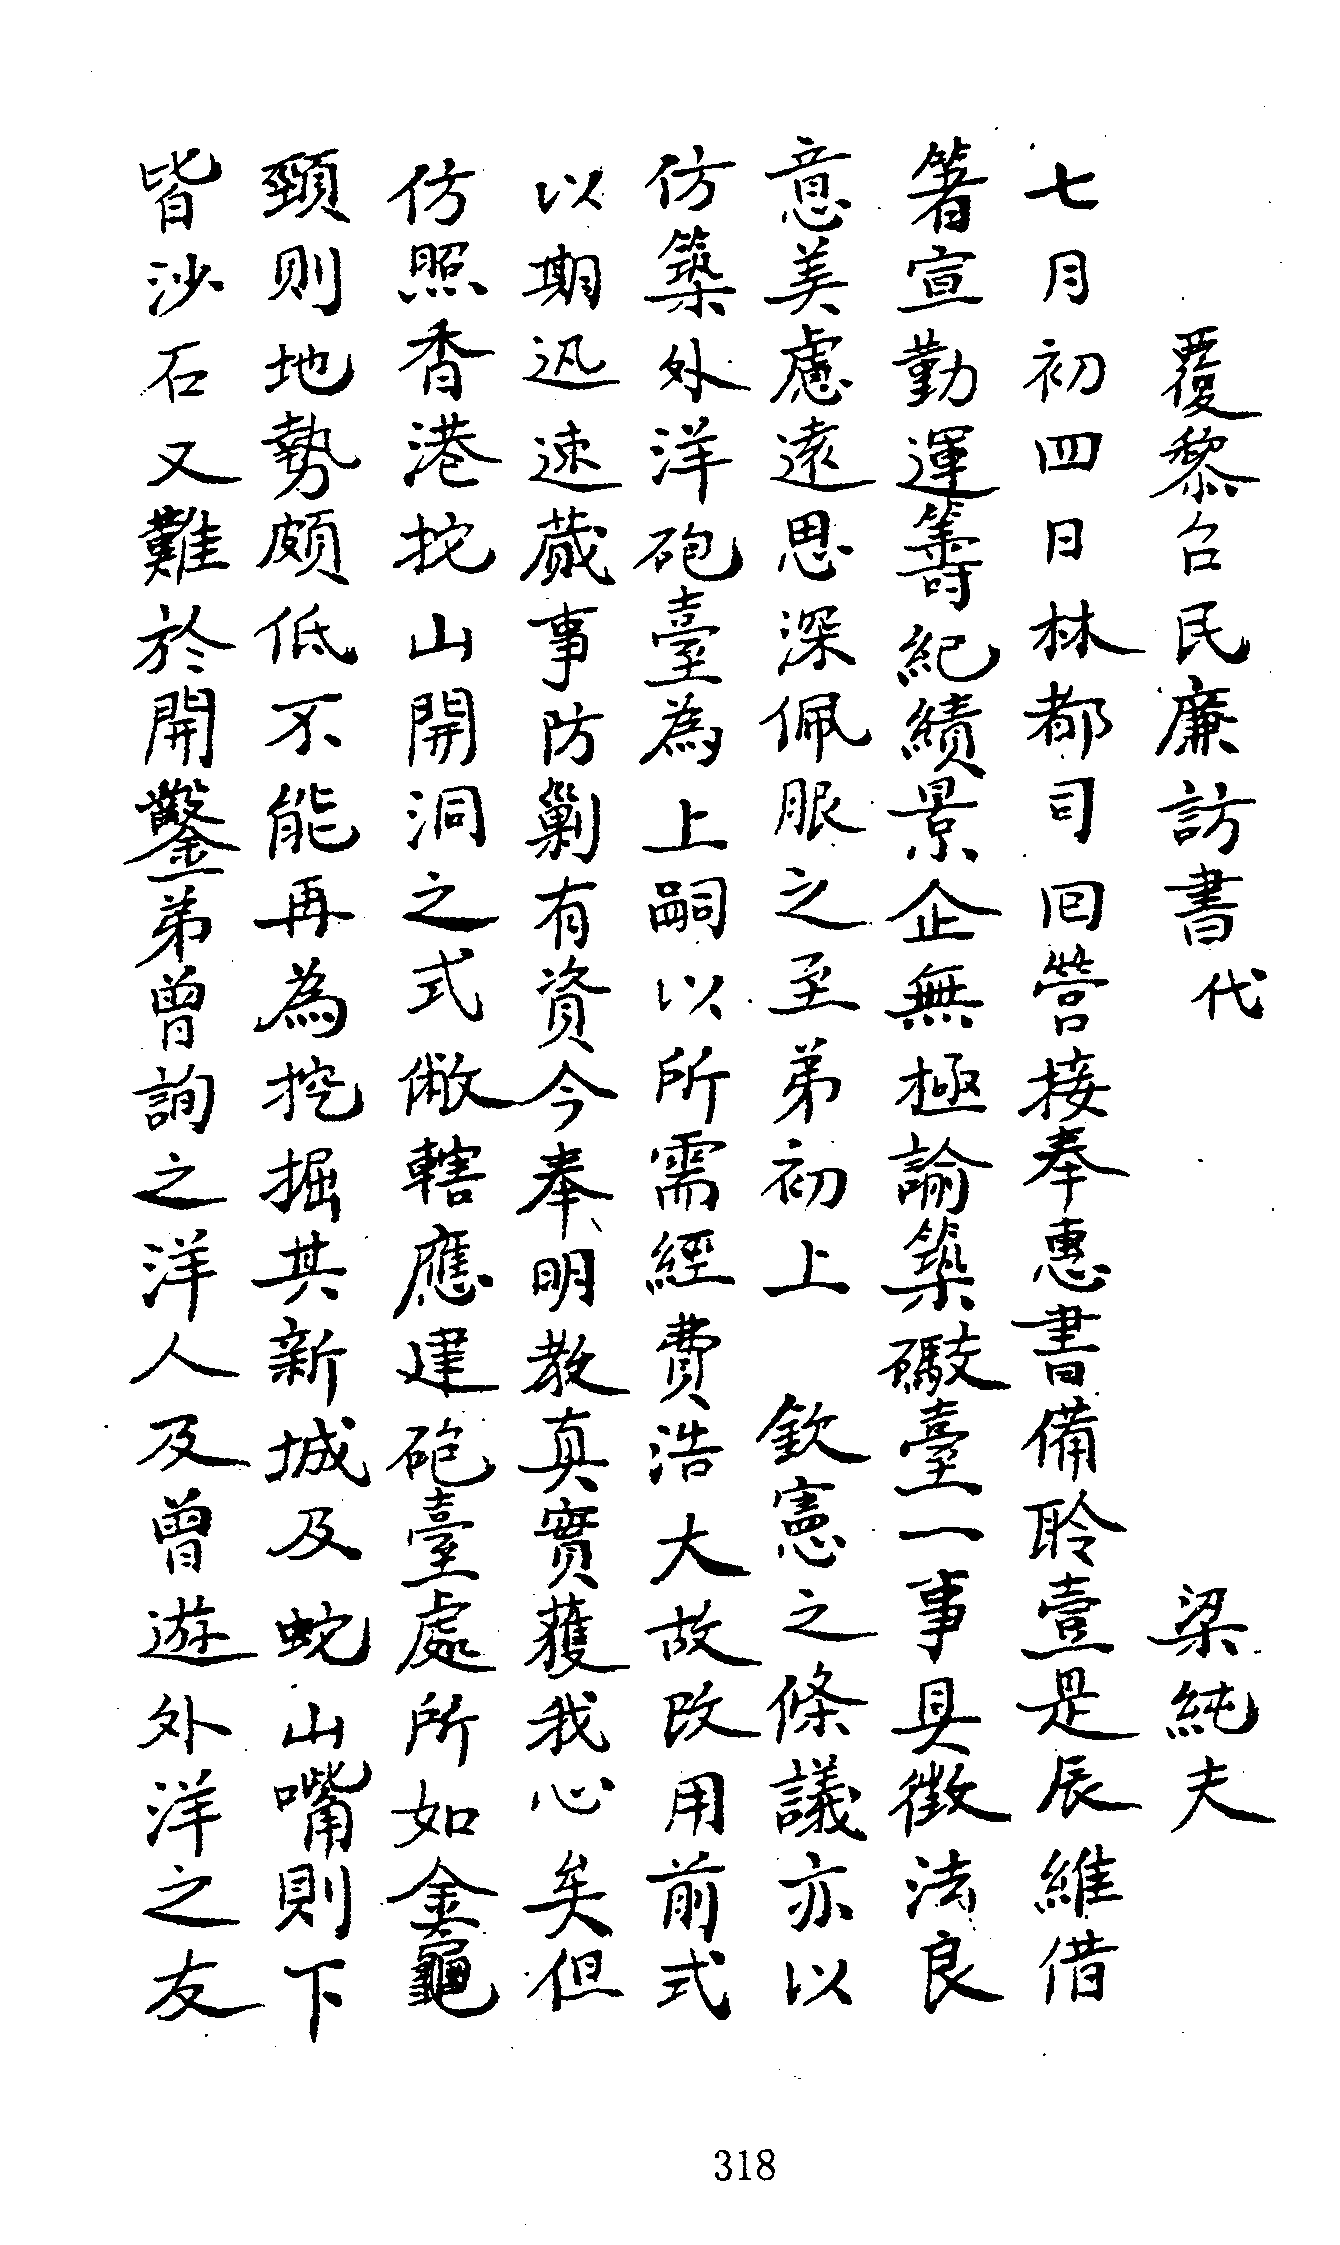 覆黎召民廉訪書代　梁純夫
七月初四日林都司回營接奉惠書備聆壹是辰維借
箸宣勤運籌紀績景企無極諭築礮臺一事具徵法良
意美慮遠思深佩服之至弟初上　欽憲之條議亦以
仿築外洋砲臺為上嗣以所需經費浩大故改用前式
以期迅速蕆事防剿有資今奉明教真實獲我心矣但
仿照香港挖山開洞之式僘轄應建砲臺處所如金龜
頸則地勢頗低不能再為挖掘其新城及蛇山嘴則下
皆沙石又難於開鑿弟曾詢之洋人及曾遊外洋之友
318